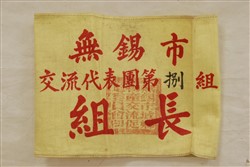 無錫市
交流代表團第捌組
組長